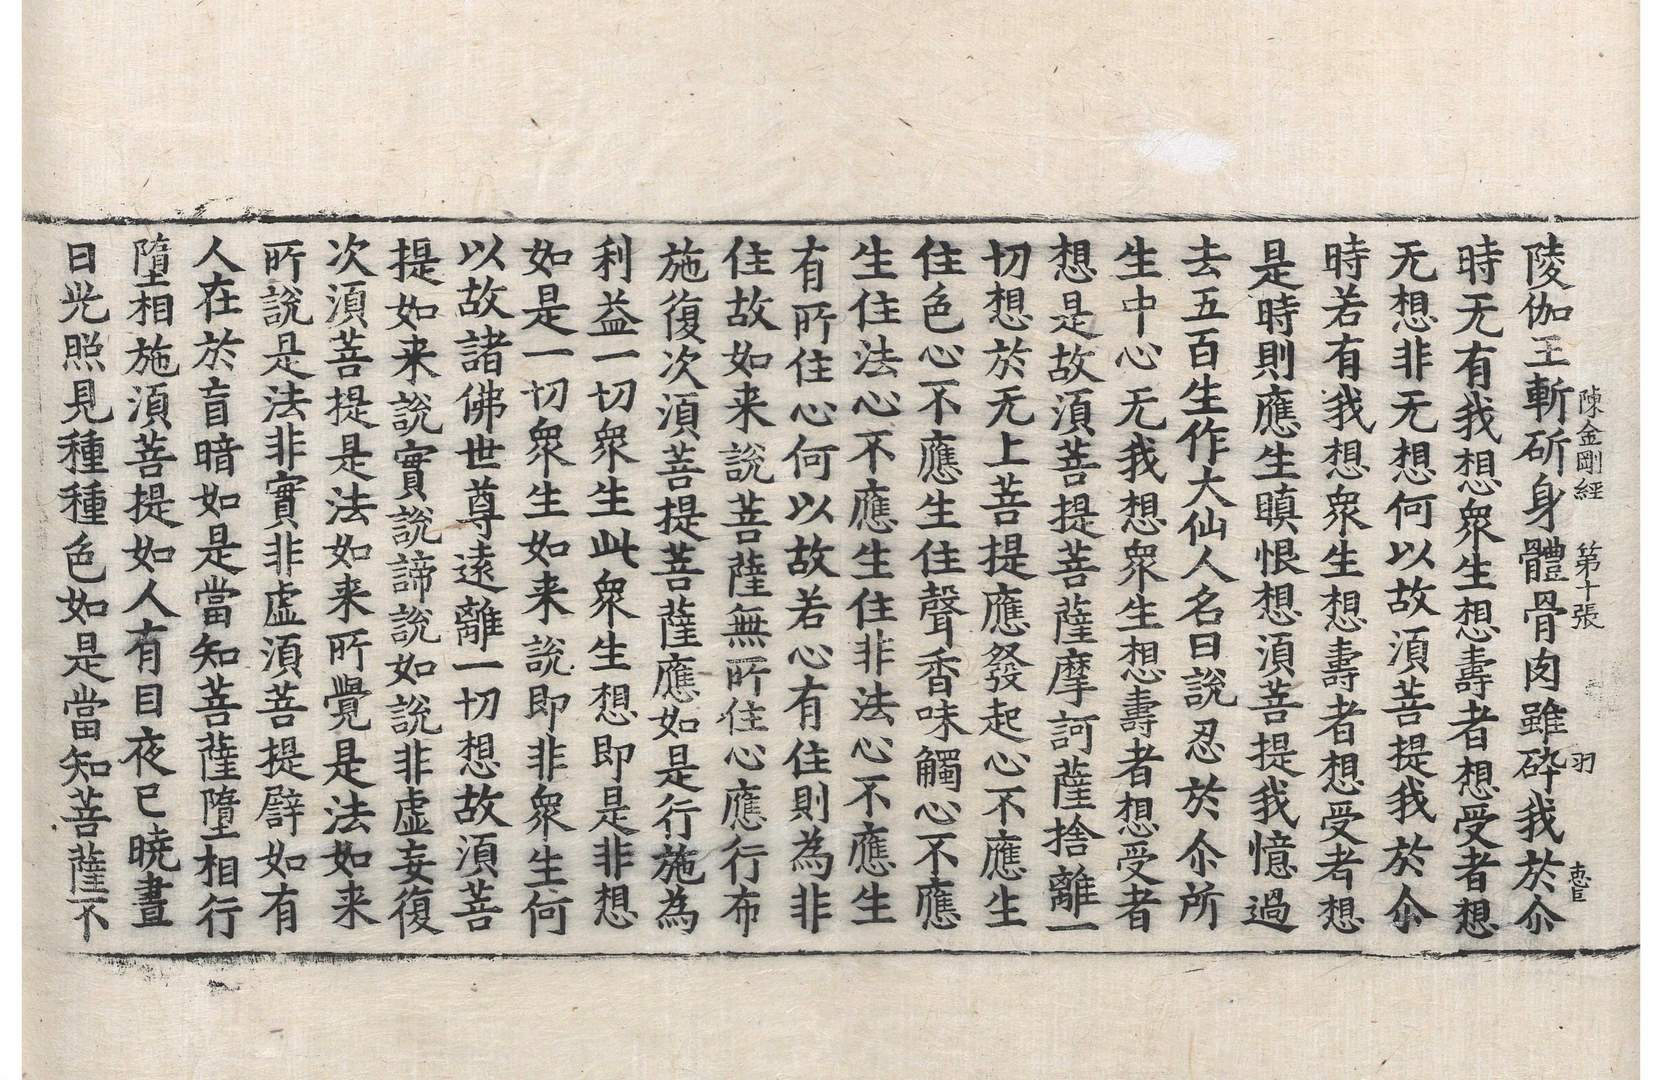 陳金剛經　第十張　羽　
陵伽王斬斫身體骨肉雖碎我於尒
時无有我想衆生想壽者想受者想
无想非无想何以故須菩提我於尒
時若有我想衆生想壽者想受者想
是時則應生瞋恨想須菩提我憶過
去五百生作大仙人名曰說忍於尒所
生中心无我想衆生想壽者想受者
想是故須菩提菩薩摩訶薩捨離一
切想於无上菩提應發起心不應生
住色心不應生住聲香味觸心不應
生住法心不應生住非法心不應生
有所住心何以故若心有住則為非
住故如来說菩薩無所住心應行布
施復次須菩提菩薩應如是行施為
利益一切衆生此衆生想即是非想
如是一切衆生如来說即非衆生何
以故諸佛世尊遠離一切想故須菩
提如来說實說諦說如說非虛妄復
次須菩提是法如来所覺是法如来
所說是法非實非虛須菩提譬如有
人在於盲暗如是當知菩薩墮相行
墮相施須菩提如人有目夜已曉晝
日光照見種種色如是當知菩薩不